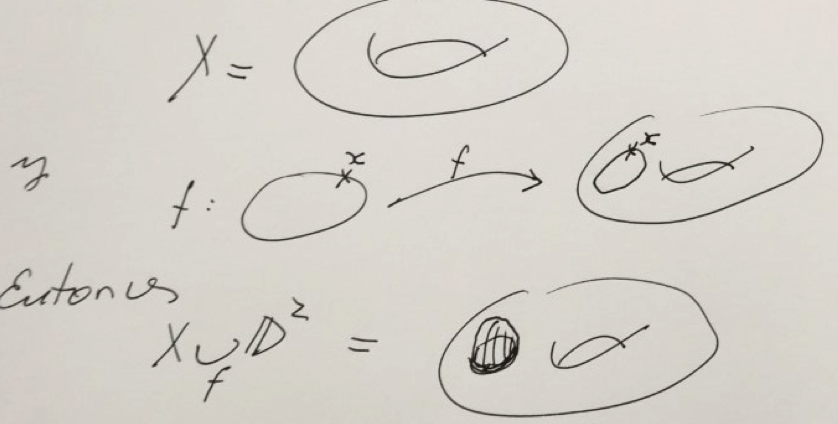 X =
y
x
f: f x
Entonces
X ∪_f 𝔻² =